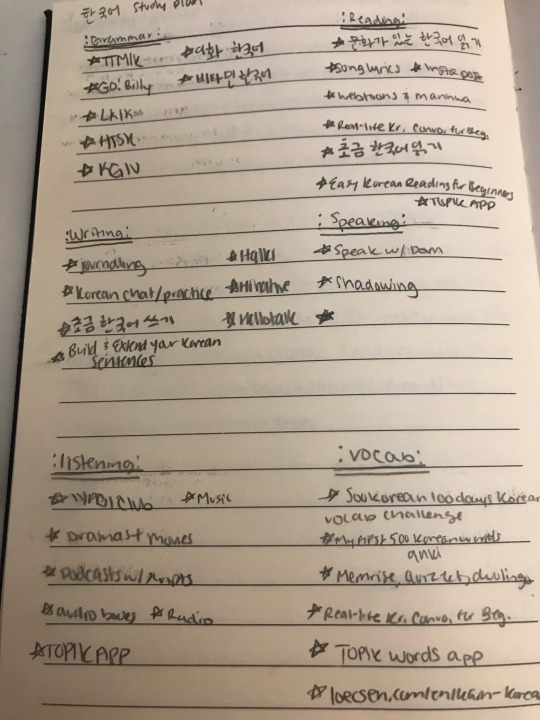 한국어 study plan
:Grammar:
☆TTMIK ☆이화 한국어
☆GO! Billy ☆비타민 한국어
☆LKIK
☆HTSK
☆KGIU
:Reading:
☆문화가 있는 한국어 읽기
☆Song lyrics ☆Insta post
☆webtoons & manhwa
☆Real-life Kr. Convo. for Beg.
☆초금 한국어 읽기
☆Easy Korean Reading for Beginners
☆TOPIK APP
:Writing:
☆journaling ☆Italki
☆Korean chat/practice ☆Hinative
☆초금 한국어 쓰기 ☆Hellotalk
☆Build & Extend your Korean
Sentences
:Speaking:
☆Speak w/ Dom
☆Shadowing
☆
:listening:
☆Club ☆Music
☆Dramas + movies
☆Podcasts w/ scripts
☆audio books ☆Radio
☆TOPIK APP
:vocab:
☆500 Korean 100 days Korean
vocab challenge
☆My First 500 Korean words
anki
☆Memrise, Quizlet, duolingo
☆Real-life Kr. Convo. for Beg.
☆TOPIK words app
☆loecsen.com/en/learn-korea